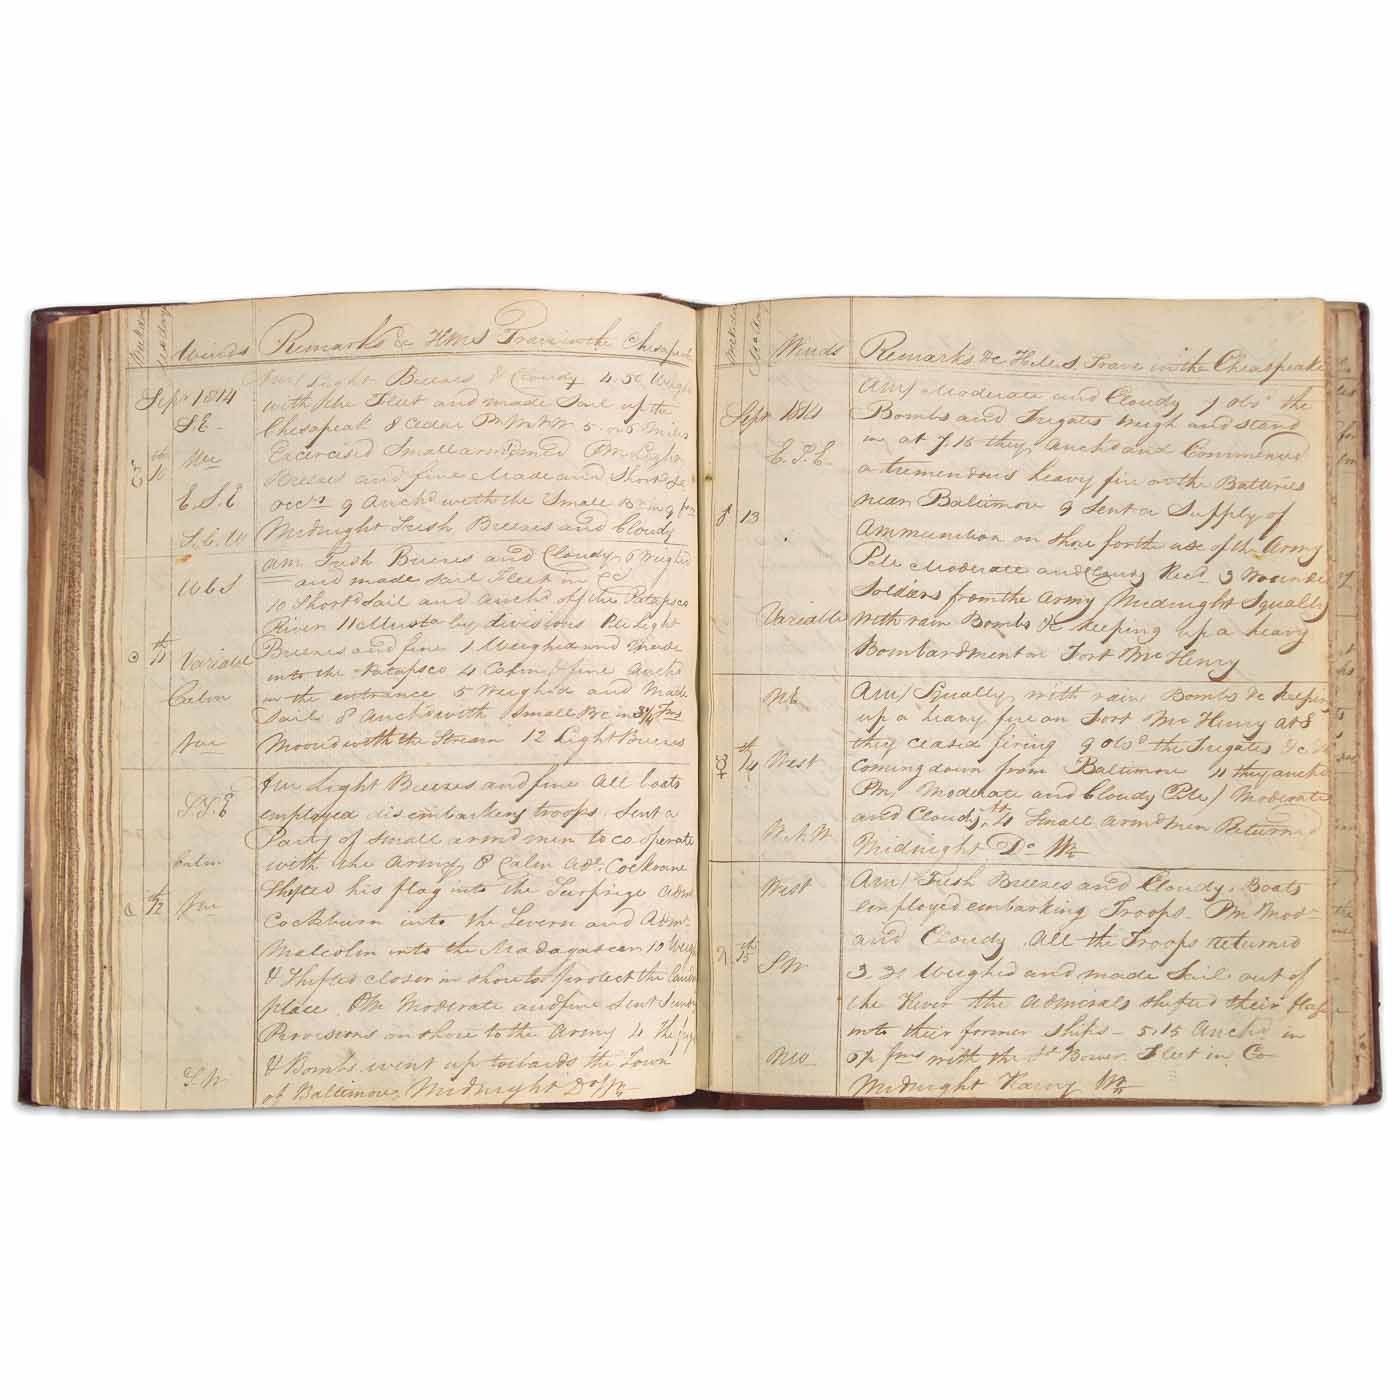 Winds Remarks &c HMS Trave in the Chesapeak
Sepr 1814
AM/ Light Breezes & Cloudy 4.50 Weighd
with the Fleet and made Sail up the
S.E.
Chesapeak 8 Cedar Pt NNW 5 or 6 Miles
Exercised Small arm'd men PM Light
10th
Breezes and fine Made and Shortd Sail
E.S.E
occly 9 Anchd with the Small Br in 9 fms
Midnight Fresh Breezes and Cloudy
AM Fresh Breezes and Cloudy 6 Weighed
and made Sail Fleet in Co
W b S
10 Shortd Sail and Anchd off the Patapsco
River 11 Musta by divisions PM Light
11th
Variable
Breezes and fine 1 Weighed and made
into the Patapsco 4 Calm & fine Anchd
Calm
in the entrance 5 Weighed and Made
Sail 8 Anchd with Small Br in 3¼ fms
Moored with the Stream 12 Light Breezes
Light Breezes and fine All boats
S.S.E
employed disembarking troops. Sent a
Party of small armd men to co operate
Calm
with the Army 8 Calm Adl. Cockrane
Shifted his flag into the Surprize Adml
12th
Cockburn into the Severn and Adml
Malcolm into the Madagascan 10 Weighd
& Shifted closer in shore to protect the landing
place. PM Moderate and fine Sent Sundry
Provisions on shore to the Army 4 The frigs
& Bombs went up towards the Town
S W
of Baltimore Midnight Do Wr
Winds Remarks &c HMS Trave in the Cheasapeake
AM/ Moderate and Cloudy 7 obsd the
Sepr 1814
Bombs and Frigates weigh and stand
in at 7.15 they Anchd and Commenced
E.S.E.
a tremendous heavy fire on the Batteries
near Baltimore 9 Sent a Supply of
♂ 13
Ammunition on shore for the use of the Army
PM Moderate and Cloudy Recd 3 Wounded
Soldiers from the Army Midnight Squally
Variable
with rain Bombs &c keeping up a heavy
Bombardment on Fort McHenry
NE
AM/ Squally with rain Bombs &c keeping
up a heavy fire on Fort McHenry at 8
14th
West
they ceased firing 9 obsd the Frigates &c
coming down from Baltimore 11 they anchd
PM Moderate and Cloudy PM/ Moderate
and Cloudy at 4 Small Armd Men Returned
W.N.W
Midnight Do Wr
West
AM/ Fresh Breezes and Cloudy. Boats
employed embarking Troops. PM Modte
♃ 15th
and Cloudy. All the Troops returned
SW
3.30 Weighed and made Sail out of
the River the Admirals shifted their flags
into their former ships – 5.15 Anchd in
fms with the St Bower. Fleet in Co
Midnight Wr